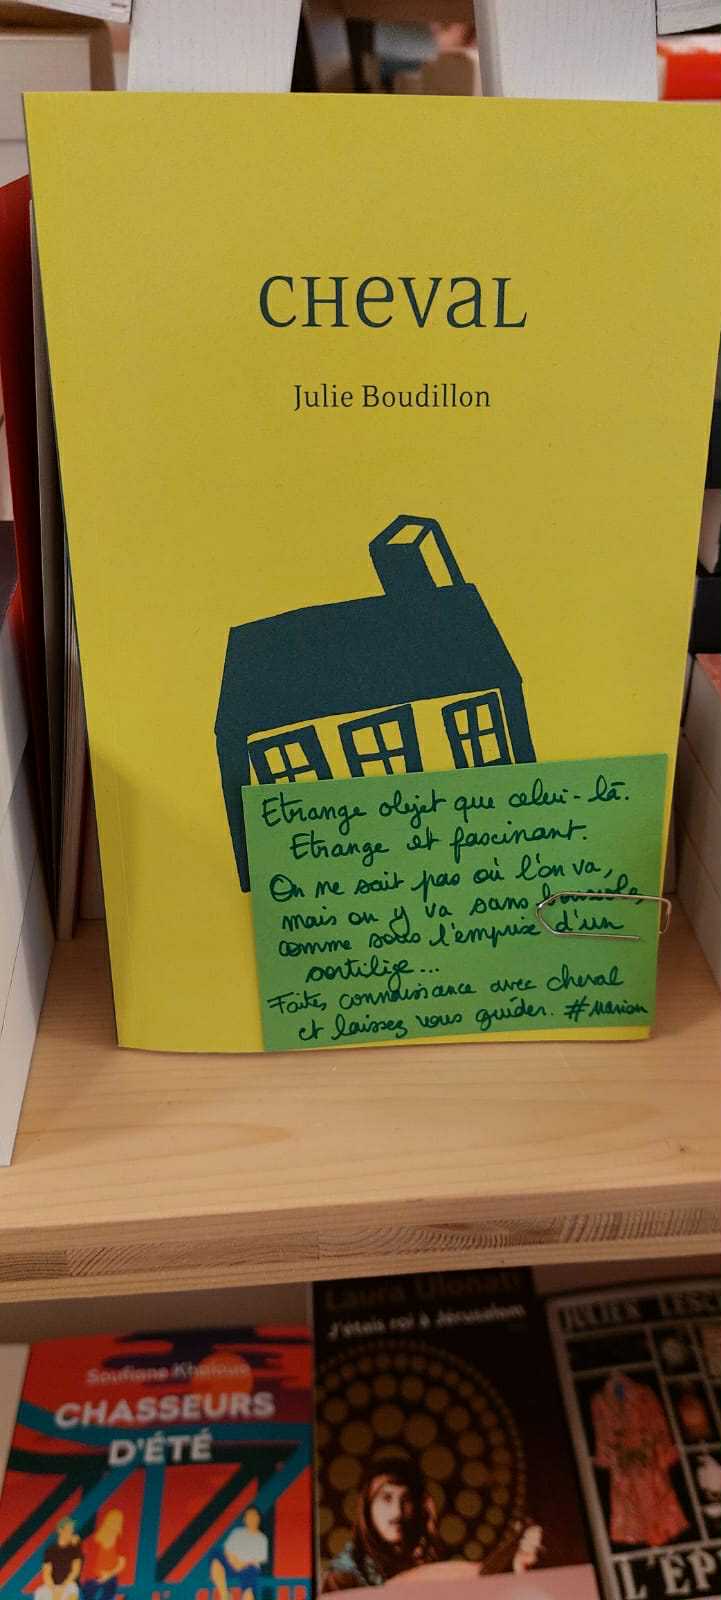 CHEVAL
Julie Boudillon
Etrange objet que celui-là.
Etrange et fascinant.
On ne sait pas où l'on va,
mais on y va sans boussole,
comme sous l'emprise d'un
sortilège...
Faites connaissance avec cheval
et laissez vous guider. #Marion
Laura Ulonati
J'étais roi à Jérusalem
JULIEN
Soufiane Khaloua
CHASSEURS
D'ÉTÉ